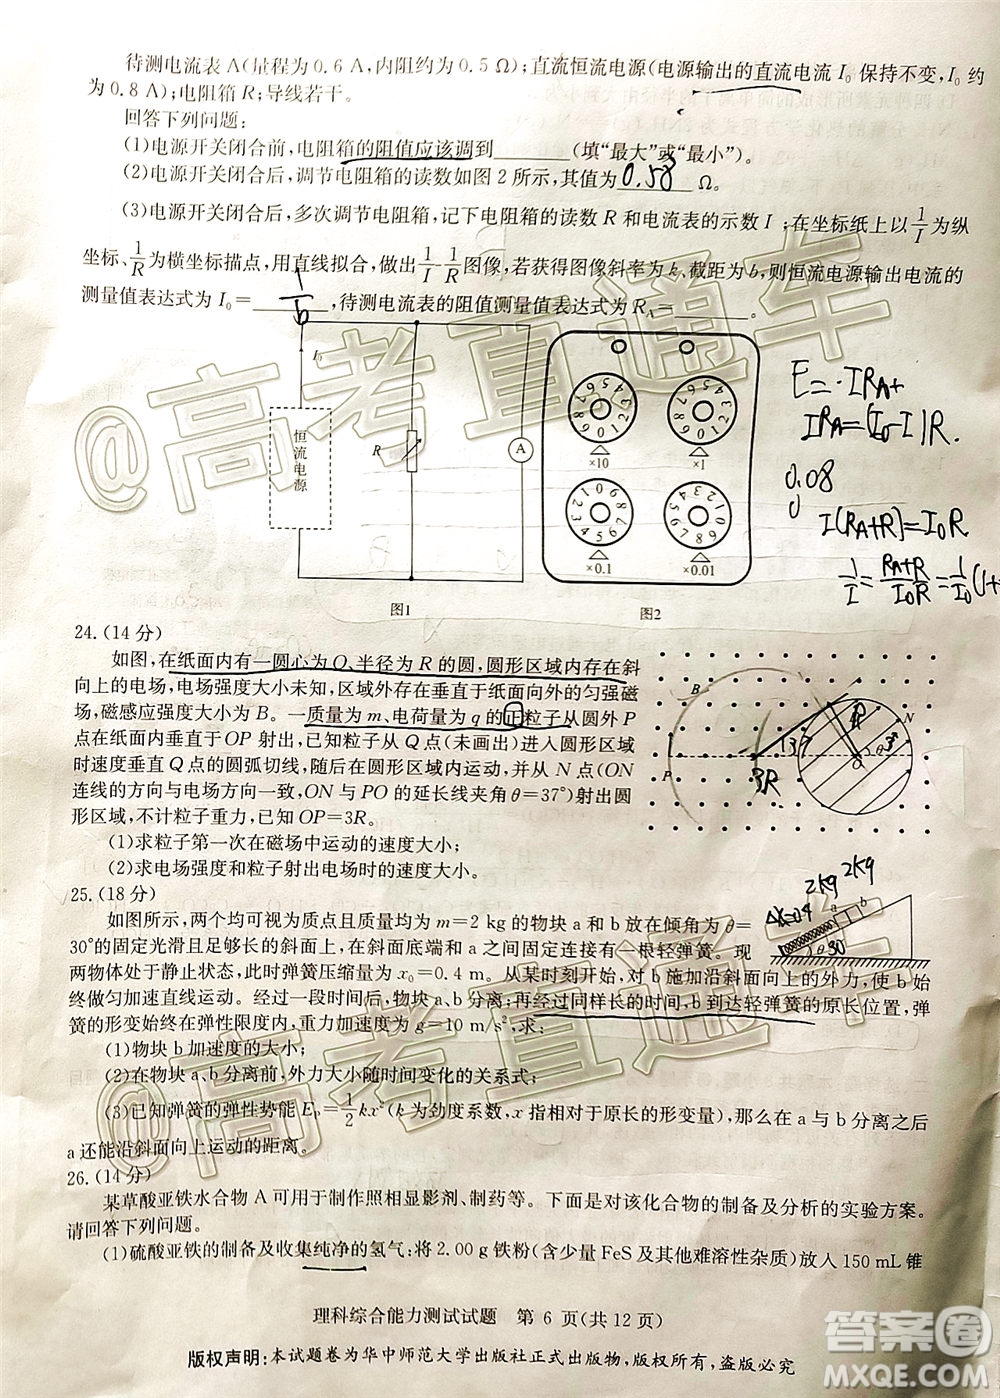 待测电流表 A(量程为 0.6 A,内阻约为 0.5 Ω);直流恒流电源(电源输出的直流电流 I₀ 保持不变,I₀ 约
为 0.8 A);电阻箱 R;导线若干。
回答下列问题:
(1)电源开关闭合前,电阻箱的阻值应该调到________(填“最大”或“最小”)。
(2)电源开关闭合后,调节电阻箱的读数如图 2 所示,其值为 0.58 Ω。
(3)电源开关闭合后,多次调节电阻箱,记下电阻箱的读数 R 和电流表的示数 I;在坐标纸上以 1/I 为纵
坐标、1/R 为横坐标描点,用直线拟合,做出 1/I-1/R 图像,若获得图像斜率为 k、截距为 b,则恒流电源输出电流的
测量值表达式为 I₀= 1/b ,待测电流表的阻值测量值表达式为 R_A=________。
I₀
恒流电源
R
A
×10
×1
×0.1
×0.01
图1
图2
E=·IR_A+
IR_A=(I₀-I)R.
0.08
0
I(R_A+R)=I₀R
1/I=(R_A+R)/(I₀R)=1/I₀(1+
24.(14 分)
如图,在纸面内有一圆心为 O、半径为 R 的圆,圆形区域内存在斜
向上的电场,电场强度大小未知,区域外存在垂直于纸面向外的匀强磁
场,磁感应强度大小为 B。一质量为 m、电荷量为 q 的正粒子从圆外 P
点在纸面内垂直于 OP 射出,已知粒子从 Q 点(未画出)进入圆形区域
时速度垂直 Q 点的圆弧切线,随后在圆形区域内运动,并从 N 点(ON
连线的方向与电场方向一致,ON 与 PO 的延长线夹角 θ=37°)射出圆
形区域,不计粒子重力,已知 OP=3R。
(1)求粒子第一次在磁场中运动的速度大小;
(2)求电场强度和粒子射出电场时的速度大小。
B
R
N
P
3R
25.(18 分)
如图所示,两个均可视为质点且质量均为 m=2 kg 的物块 a 和 b 放在倾角为 θ=
30°的固定光滑且足够长的斜面上,在斜面底端和 a 之间固定连接有一根轻弹簧。现
两物体处于静止状态,此时弹簧压缩量为 x₀=0.4 m。从某时刻开始,对 b 施加沿斜面向上的外力,使 b 始
终做匀加速直线运动。经过一段时间后,物块 a、b 分离;再经过同样长的时间,b 到达轻弹簧的原长位置,弹
簧的形变始终在弹性限度内,重力加速度为 g=10 m/s²,求:
(1)物块 b 加速度的大小;
(2)在物块 a、b 分离前,外力大小随时间变化的关系式;
(3)已知弹簧的弹性势能 E_p=1/2 kx²(k 为劲度系数,x 指相对于原长的形变量),那么在 a 与 b 分离后
a 还能沿斜面向上运动的距离。
2kg
2kg
Δx=0.4
a
b
θ
30
26.(14 分)
某草酸亚铁水合物 A 可用于制作照相显影剂、制药等。下面是对该化合物的制备及分析的实验方案。
请回答下列问题。
(1)硫酸亚铁的制备及收集纯净的氢气:将 2.00 g 铁粉(含少量 FeS 及其他难溶性杂质)放人 150 mL 锥
理科综合能力测试试题 第 6 页(共 12 页)
版权声明:本试题卷为华中师范大学出版社正式出版物,版权所有,盗版必究
@高考直通车
@高考直通车
答案圈
MXQE.COM